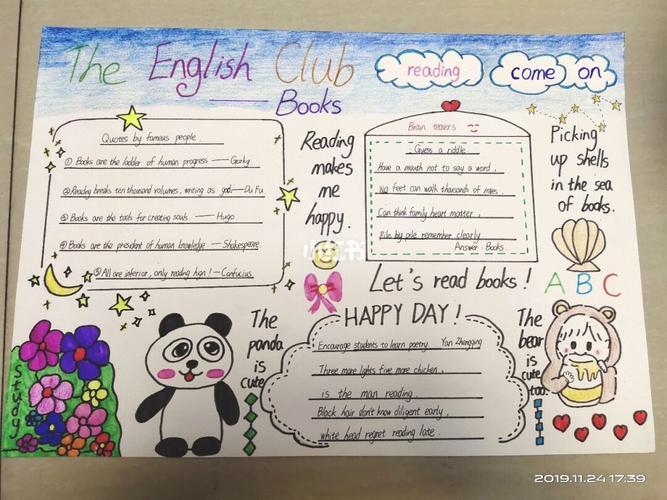 The English Club
reading
come on
—— Books
Quotes by famous people
① Books are the ladder of human progress —— Gorky
② Reading breaks ten thousand volumes, writing as god —— Du Fu
③ Books are the tools for creating souls. —— Hugo
④ Books are the president of human knowledge —— Shakespeare
⑤ All are inferior, only reading high! — Confucius
Reading
makes
me
happy.
Brain teasers
Guess a riddle
Have a mouth not to say a word,
No feet can walk thousands of miles,
Can think family heart matter,
Pile by pile remember clearly
Answer: Books.
Picking
up shells
in the sea
of books.
Let's read books!
A B C
小红书
HAPPY DAY!
Encourage students to learn poetry Yan Zhenqing
Three more lights five more chicken,
is the man reading.
Black hair don't know diligent early,
white head regret reading late.
The
panda
is
cute
The
bear
is
cute
too.
Study
2019.11.24 17:39